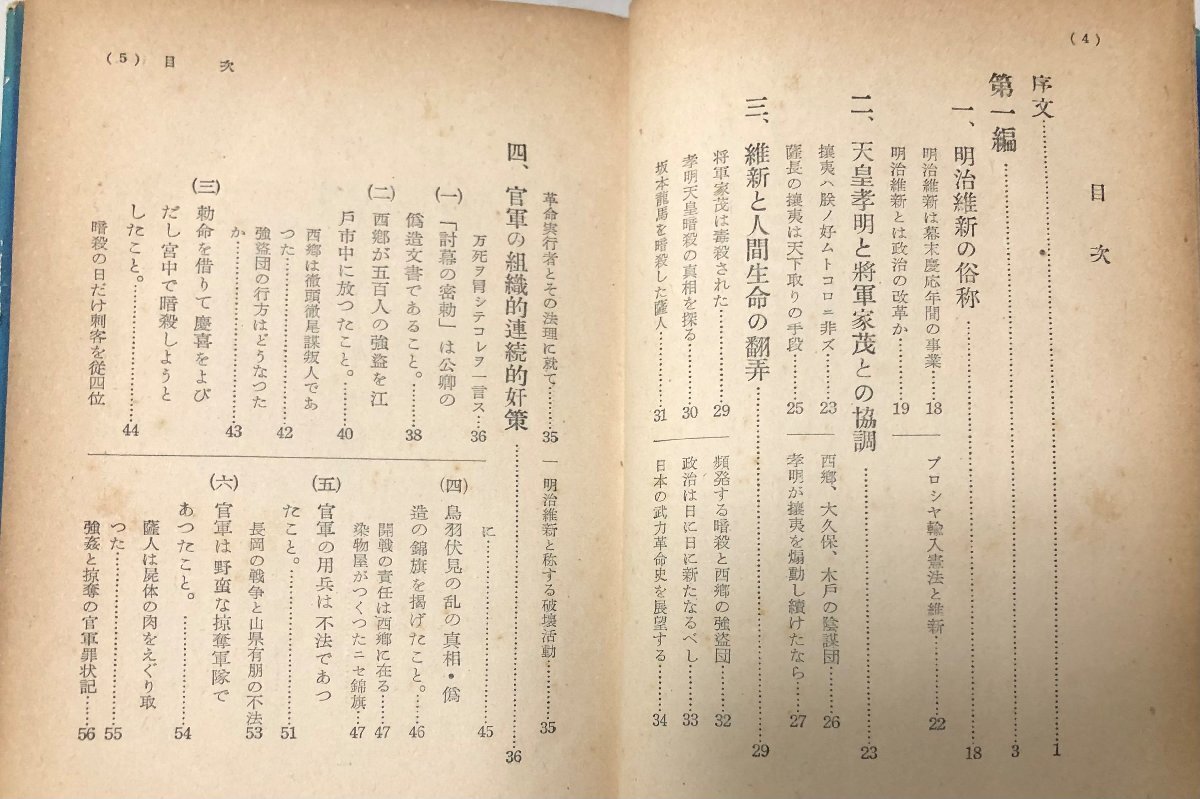 (4)
目次
序文……1
第一編……3
一、明治維新の俗称……18
明治維新は幕末慶応年間の事業……18
明治維新とは政治の改革か……19
プロシヤ輸入憲法と維新……22
二、天皇孝明と將軍家茂との協調……23
攘夷ハ朕ノ好ムトコロニ非ズ……23
薩長の攘夷は天下取りの手段……25
西郷、大久保、木戸の陰謀団……26
孝明が攘夷を煽動し續けたなら……27
三、維新と人間生命の翻弄……29
将軍家茂は毒殺された……29
孝明天皇暗殺の真相を探る……30
坂本龍馬を暗殺した薩人……31
頻発する暗殺と西郷の強盗団……32
政治は日に日に新たなるべし……33
日本の武力革命史を展望する……34
(5) 目次
革命実行者とその法理に就て……35
明治維新と称する破壊活動……35
四、官軍の組織的連続的奸策……36
万死ヲ冒シテコレヲ一言ス……36
(一) 「討幕の密勅」は公卿の
偽造文書であること。……38
(二) 西郷が五百人の強盗を江
戸市中に放つたこと。……40
西郷は徹頭徹尾謀叛人であ
つた……42
強盗団の行方はどうなつた
か……43
(三) 勅命を借りて慶喜をよび
だし宮中で暗殺しようと
したこと。……44
暗殺の日だけ刺客を従四位
に……45
(四) 鳥羽伏見の乱の真相・偽
造の錦旗を揚げたこと。……46
開戦の責任は西郷に在る……47
染物屋がつくつたニセ錦旗……47
(五) 官軍の用兵は不法であつ
たこと。……51
長岡の戦争と山県有朋の不法 53
(六) 官軍は野蛮な掠奪軍隊で
あつたこと。……54
薩人は屍体の肉をえぐり取
つた……55
強姦と掠奪の官軍罪状記……56